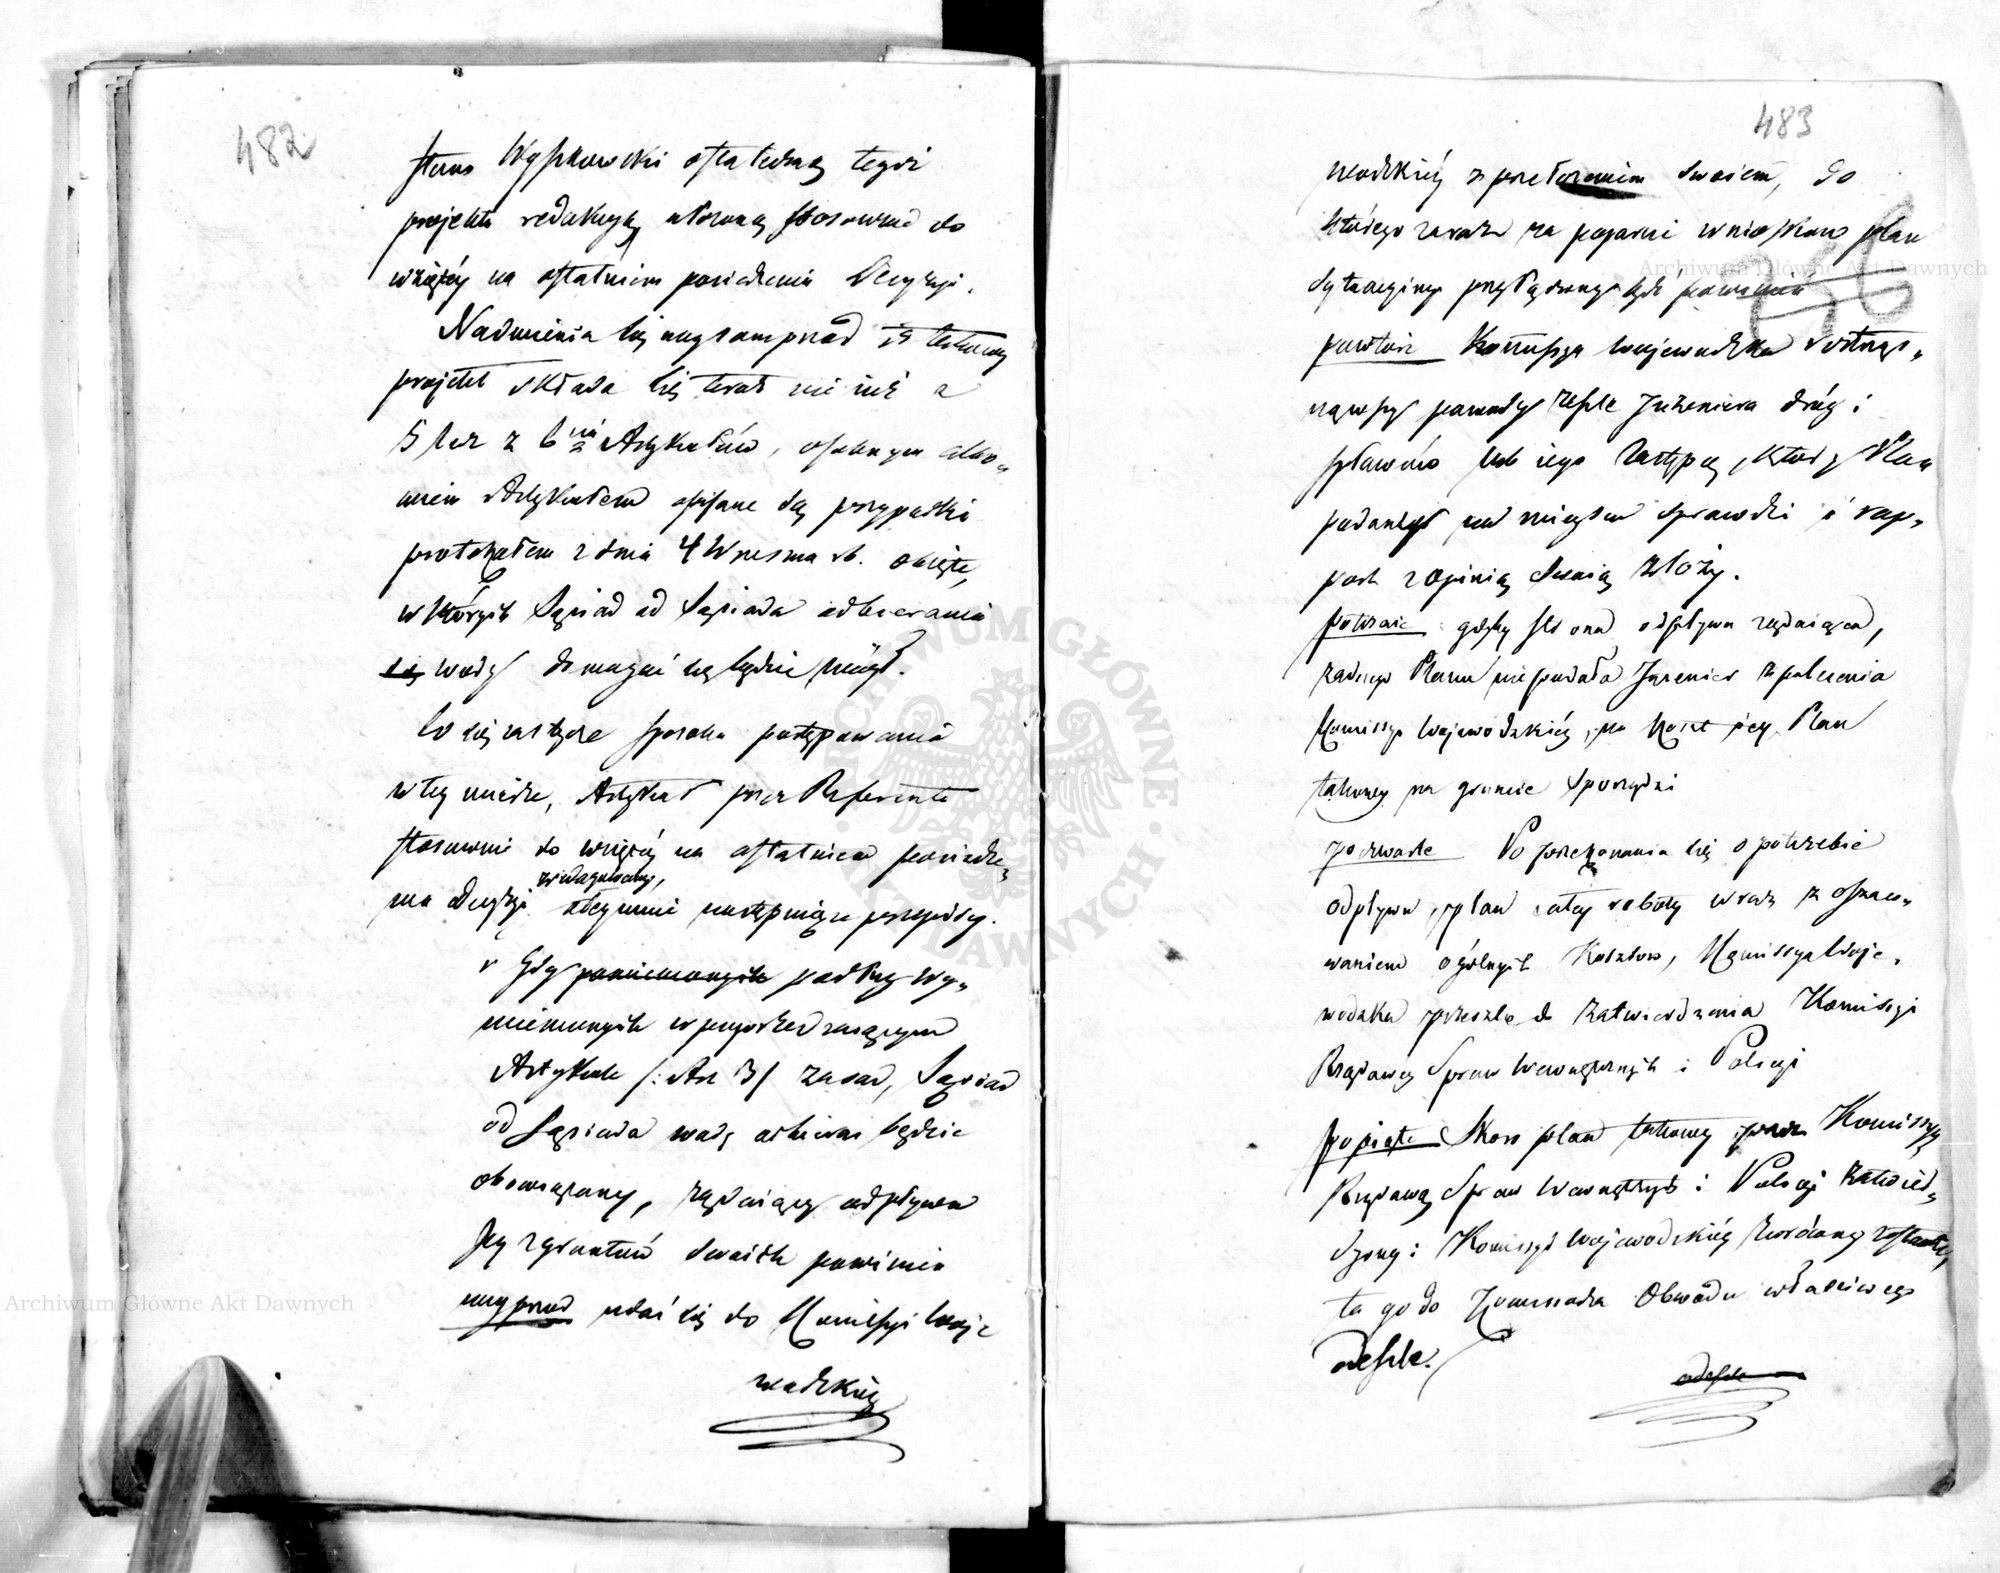 482
Stanu Wyszkowski ostateczną tegoż
projektu redakcyą ułożoną stosownie do
wziętéy na ostatniem posiedzeniu Decyzyi.
Nadmienia się naysamprzód iż takowy
projekt składa się teraz nie już z
5 lecz z 6ciu Artykułów, osobnym albo-
wiem Artykułem opisane są przypadki
protokułem z dnia 4 Wrzesnia rb. objęte,
w których Sąsiad od Sąsiada odbierania
się wody domagać się będzie mógł.
Co się tycze sposobu postępowania
w tey mierze, Artykuł przez Referenta
stosownie do wziętéy na ostatniem posiedze-
niu Decyzyi zredagowany, obeymuie następujące przepisy.
Gdy poniemonych podług wy-
mienionych w poprzedzaiącym
Artykule /: Art 3/ zasad, Sąsiad
od Sąsiada wodę odbierać będzie
obowiązany, żądaiący odpływu
Jey z gruntów swoich powinien
nayprzód udać się do Kommissyi Woje
wodzkiéy
483
wodzkiéy z przełożeniem swoiem, do
którego zaraz na poparcie wniosków plan
sytuacyiny przyłączony być powinien
powtóre Kommissya Woiewodzka rostrzą-
nąwszy powody zeszle Inżeniera dróg i
spławów lub iego Zastępcę, który Plan
podany na mieyscu sprawdzi i rap-
port z opinią swoią złoży.
potrzecie gdyby strona odpływu żądaiąca,
żadnego Planu nie podała Inżenier z polecenia
Kommissyi Woiewodzkiéy, na koszt iéy Plan
takowy na gruncie sporządzi
poczwarte Po przekonaniu się o potrzebie
odpływu, plan całey roboty wraz z oszaco-
waniem ogólnych kosztów, Kommissya Woje-
wodzka prześle do zatwierdzenia Komissyi
Rządowey Spraw Wewnętrznych i Policyi
popiąte Skoro plan takowy przez Komissyą
Rządową Spraw Wewnętrznych i Policyi zatwier-
dzony i Komissyi Woiewodzkiéy zwrócony zostanie,
ta go do Kommissarza Obwodu właściwego
odeszle.
odeszle
Archiwum Główne Akt Dawnych
Archiwum Główne Akt Dawnych
ARCHIWUM GŁÓWNE AKT DAWNYCH